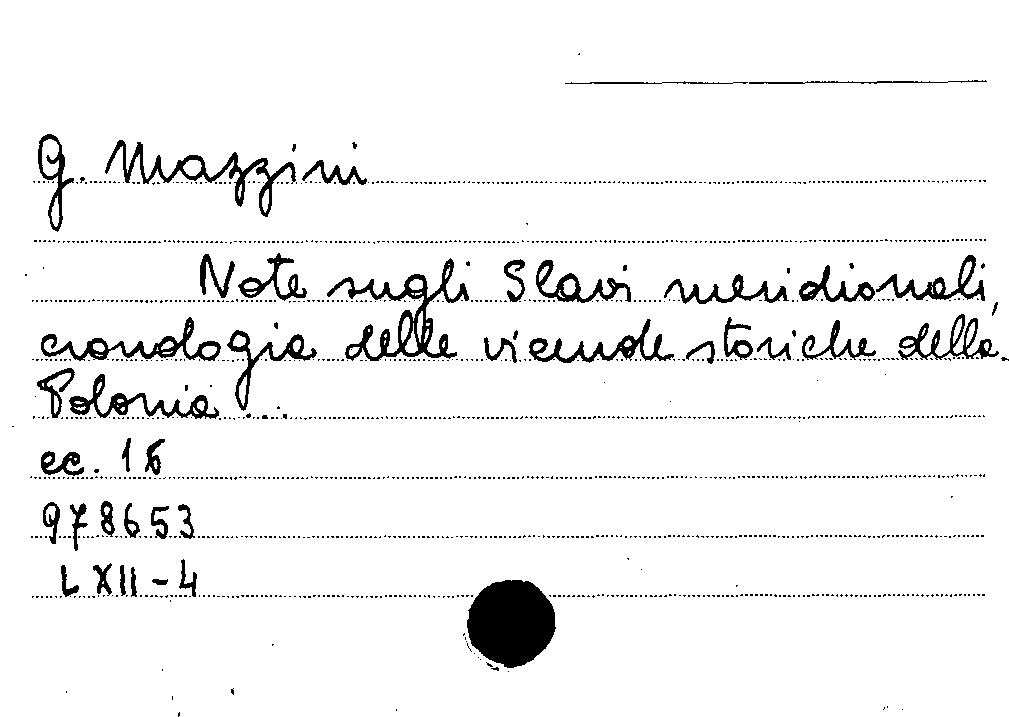 G. Mazzini
Note sugli Slavi meridionali,
cronologia delle vicende storiche della
Polonia ...
cc. 16
978653
L XII - 4